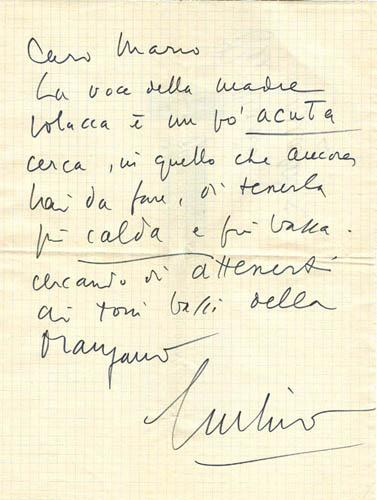 Caro Mario
La voce della madre
polacca è un pò acuta
cerca, in quello che ancora
hai da fare, di tenerla
più calda e più bassa.
cercando di attenerti
ai toni bassi della
Mangano